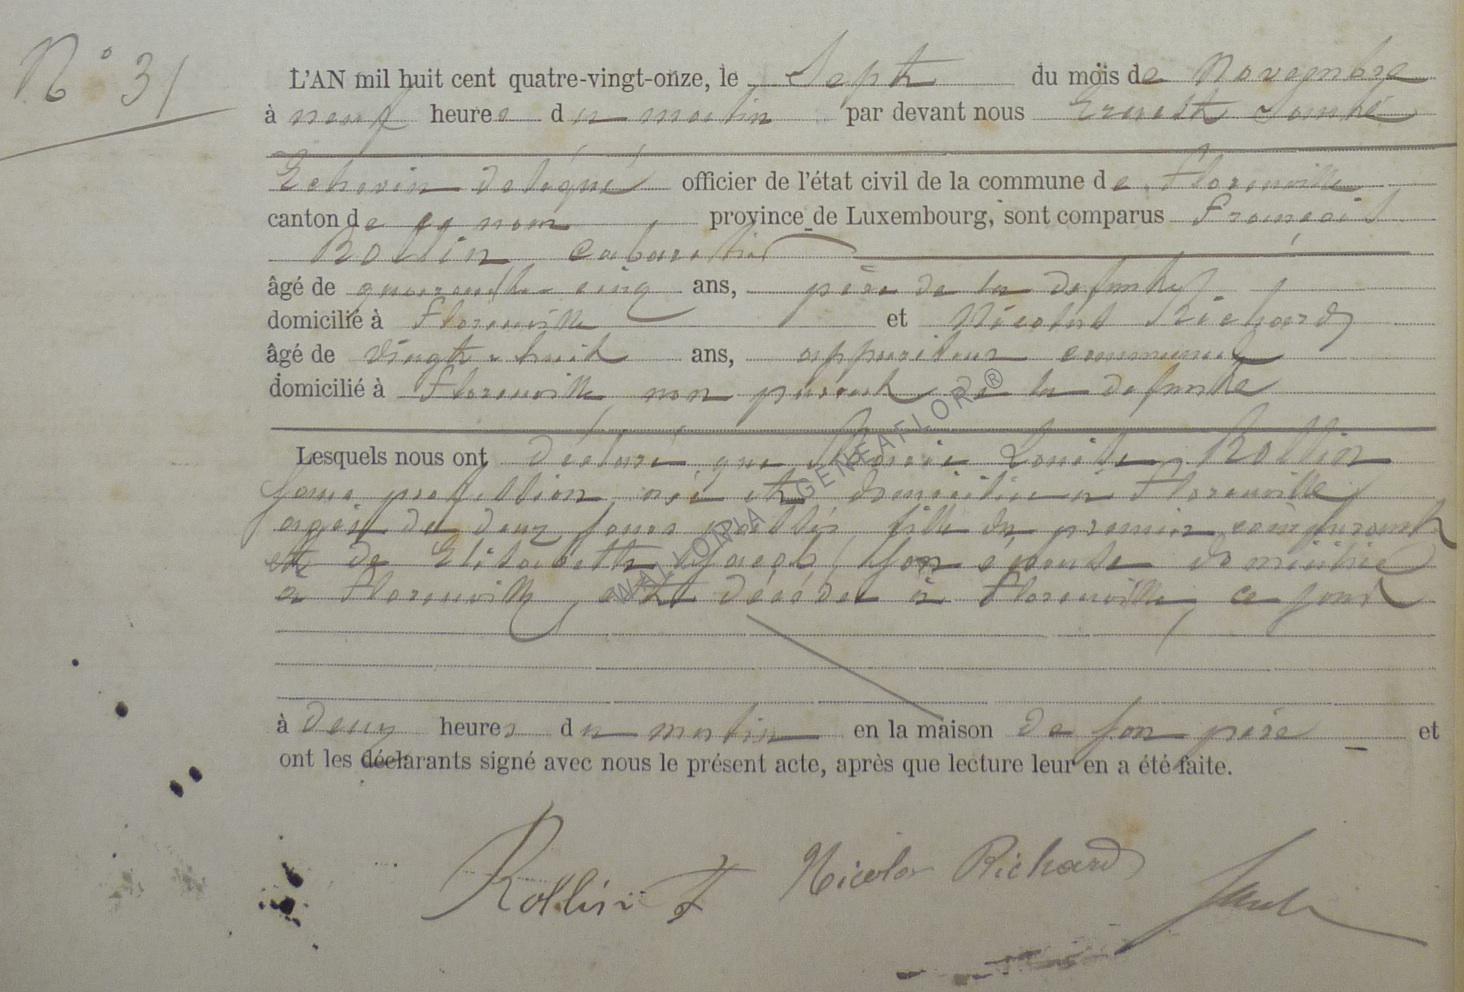 N° 31
L'AN mil huit cent quatre-vingt-onze, le Sept du mois de Novembre
à neuf heures du matin par devant nous Ernest
Echevin délégué officier de l'état civil de la commune de Florenville
canton de ce nom, province de Luxembourg, sont comparus François
Rollin cabaretier
âgé de quarante-cinq ans, père de la defunte,
domicilié à Florenville et Nicolas Richard,
âgé de vingt-huit ans, appariteur communal
domicilié à Florenville, non parent de la defunte
Lesquels nous ont déclaré que Marie Louise Rollin
sans profession, née et domiciliée à Florenville,
agée de deux jours fille du premier comparant
et de Elisabeth son épouse domiciliée
à Florenville, est décédée à Florenville, ce jourd
à deux heures du matin en la maison de son père et
ont les déclarants signé avec nous le présent acte, après que lecture leur en a été faite.
Rollin F Nicolas Richard
WALLONIA GENEAFLOR®